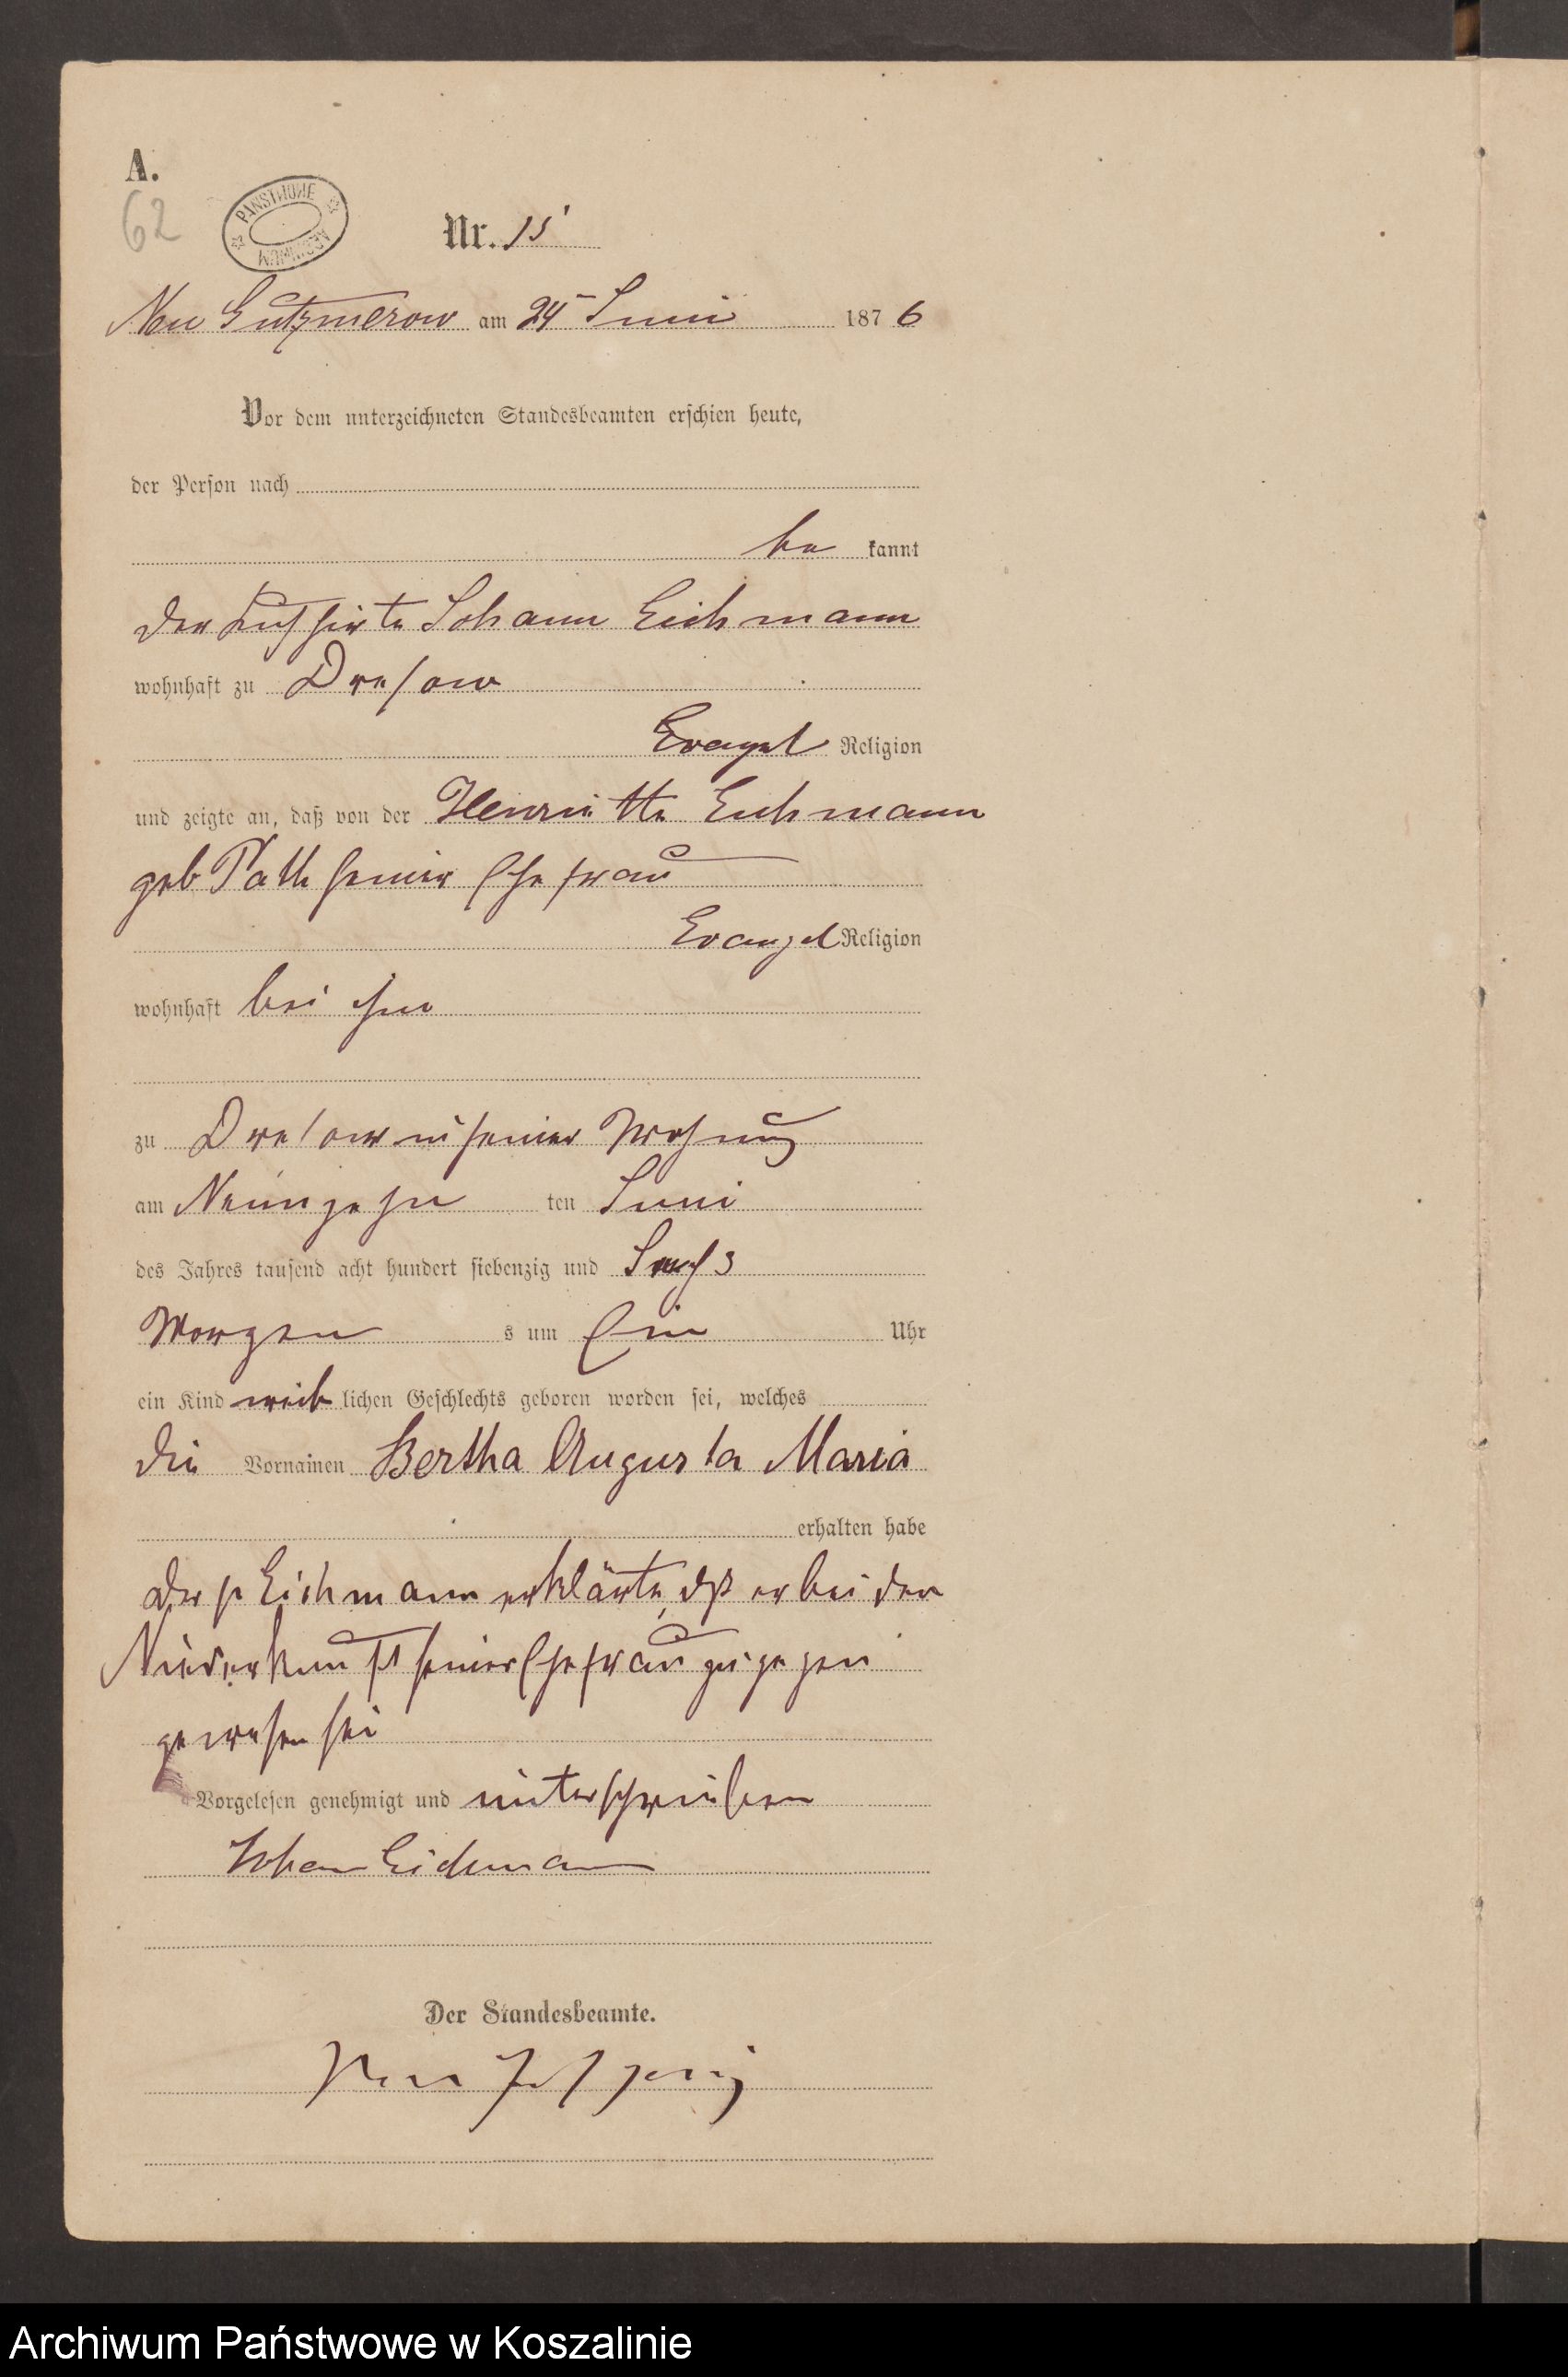 A.
62
PANSTWOWE
ARCHIWUM
Nr. 15
Neu Gutzmerow am 24 Juni 1876
Vor dem unterzeichneten Standesbeamten erschien heute,
der Person nach
be kannt
der Kuhhirte Johann Eichmann
wohnhaft zu Dresow
Evangel Religion
und zeigte an, daß von der Henriette Eichmann
geb Path seiner Ehefrau
Evangel Religion
wohnhaft bei ihm
zu Dresow in seiner Wohnung
am Neunzehn ten Juni
des Jahres tausend acht hundert siebenzig und Sechs
Morgen s um Ein Uhr
ein Kind weib lichen Geschlechts geboren worden sei, welches
die Vornamen Bertha Augusta Maria
erhalten habe
der p Eichmann erklärte, dß er bei der
Niederkunft seiner Ehefrau zugegen
gewesen sei
Vorgelesen genehmigt und unterschrieben
Johan Eichmann
Der Standesbeamte.
Archiwum Państwowe w Koszalinie